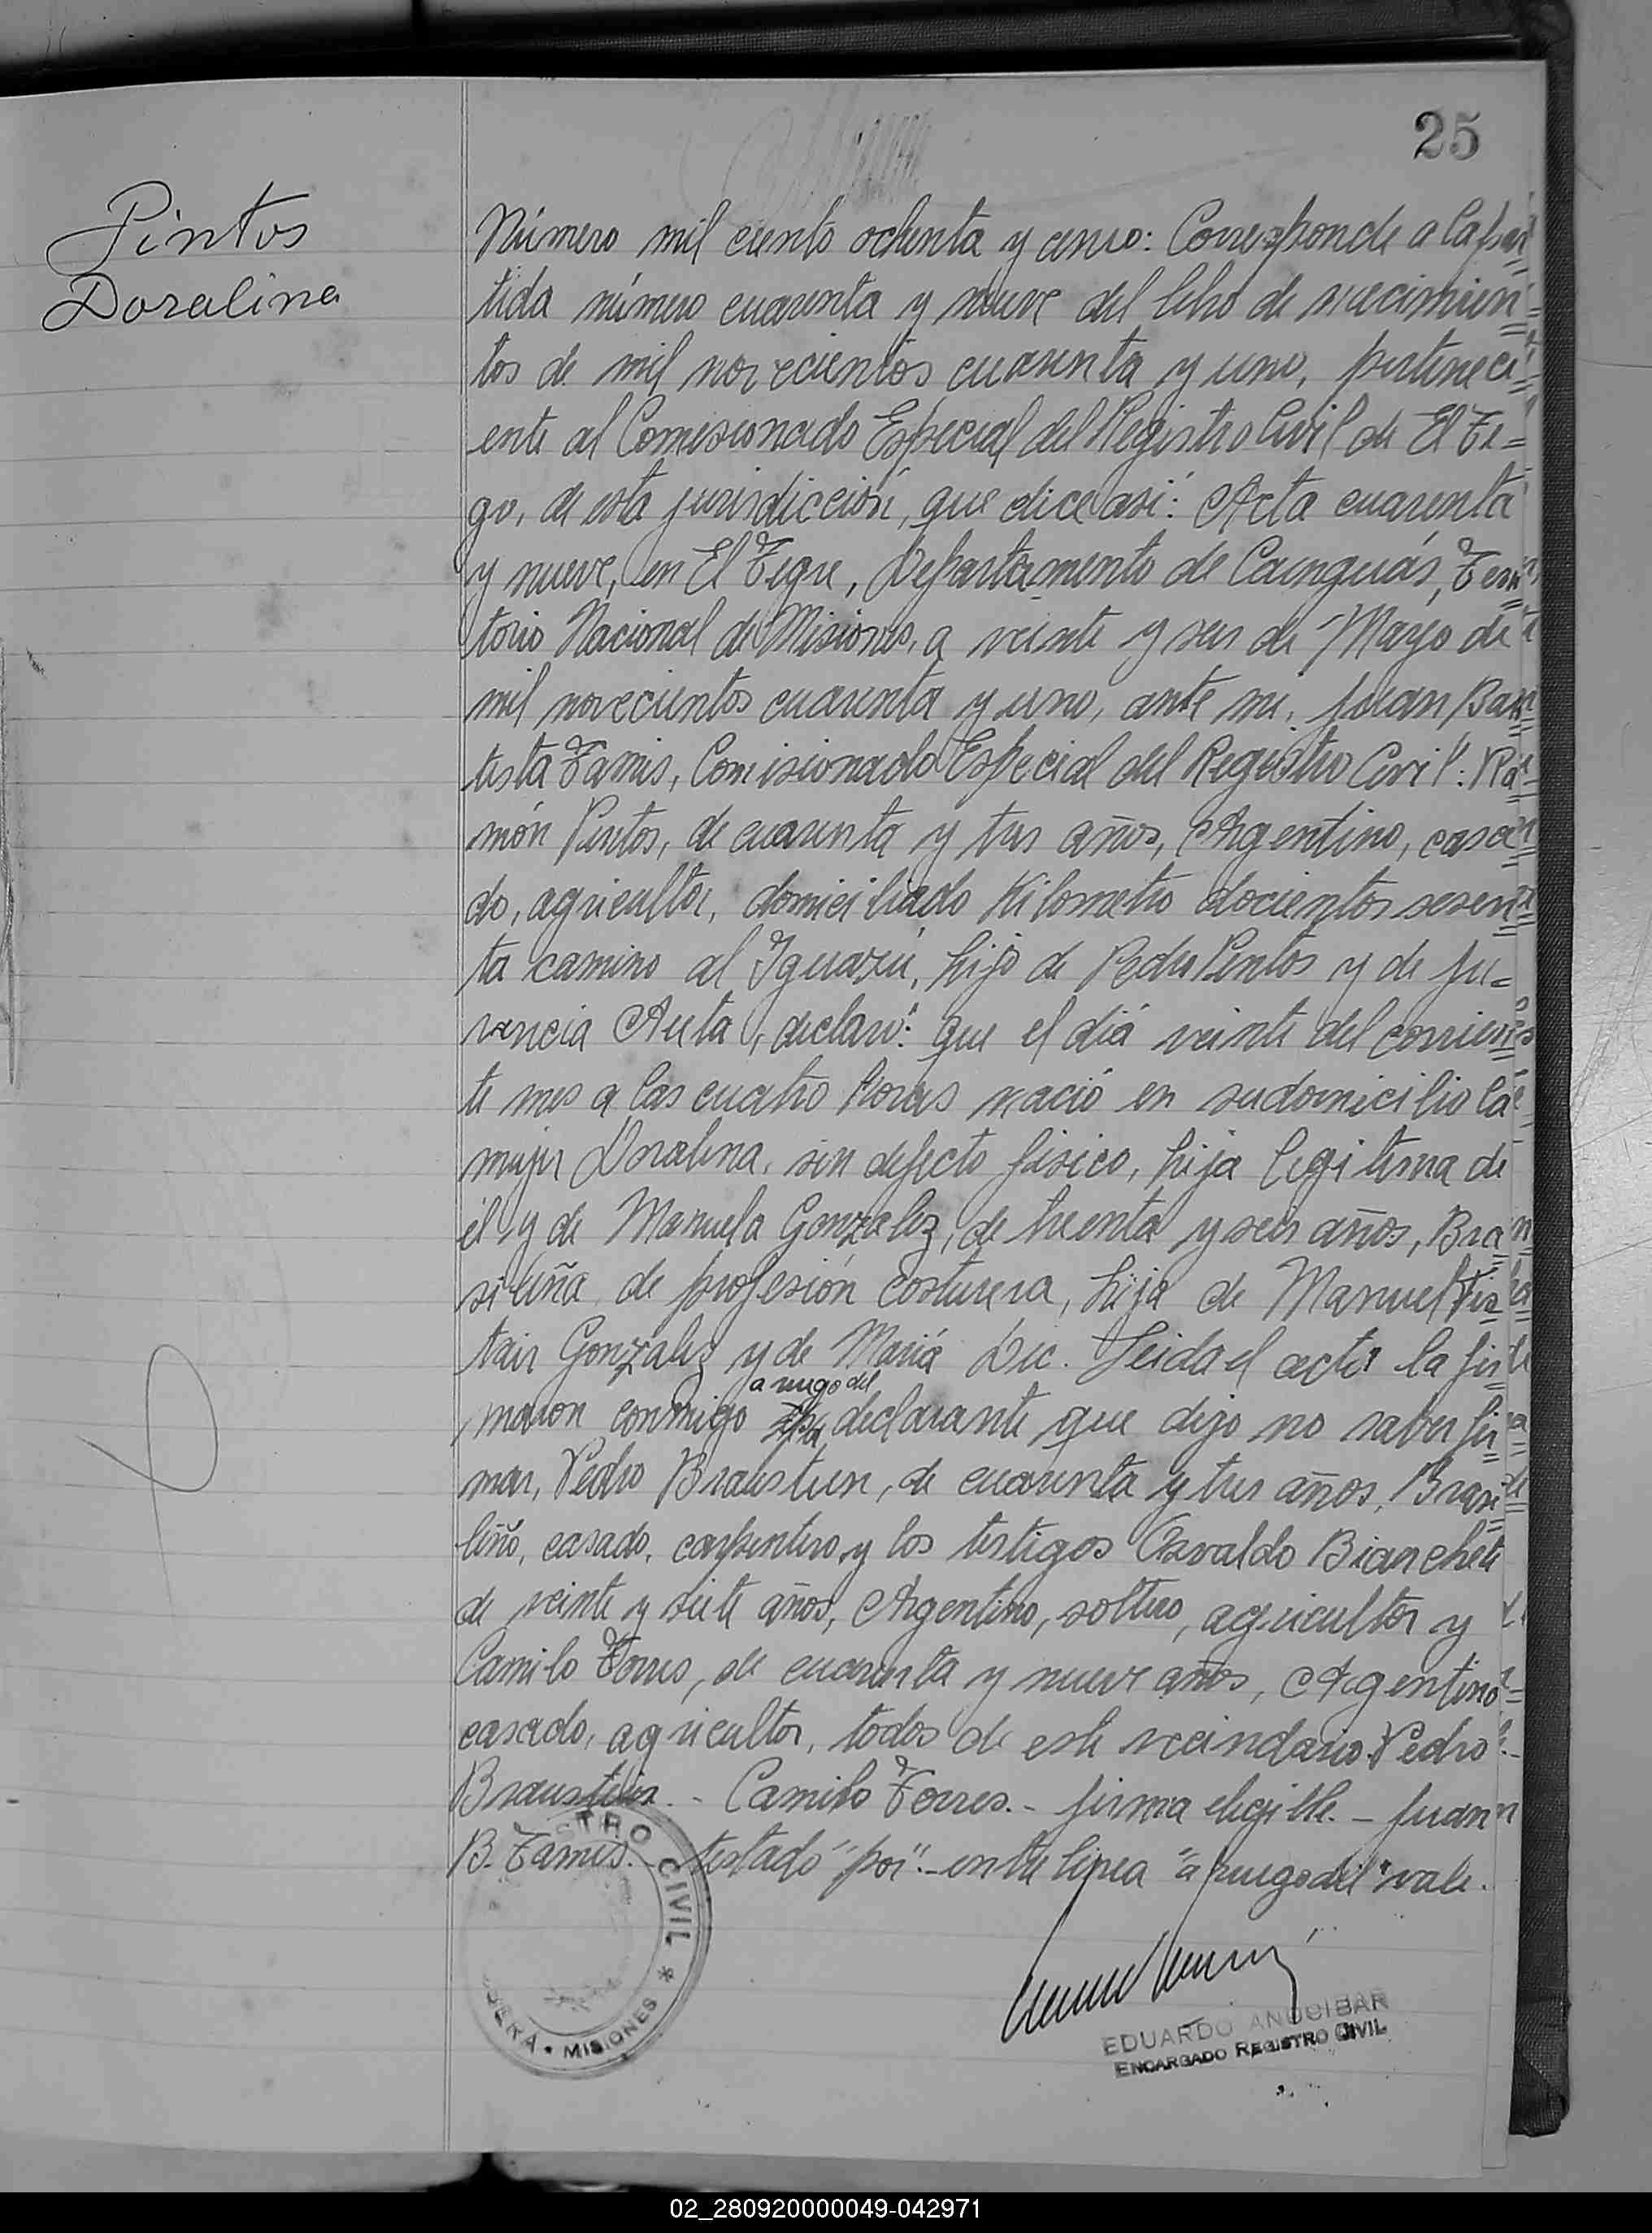 25
Pintos
Doralina
Número mil ciento ochenta y cinco: Corresponde a la par=
tida número cuarenta y nueve del libro de nacimien=
tos de mil novecientos cuarenta y uno, perteneci=
ente al Comisionado Especial del Registro Civil de El Ti=
gre, de esta jurisdicción, que dice así: Acta cuarenta
y nueve, en El Tigre, Departamento de Cainguás, Terri=
torio Nacional de Misiones, a veinte y seis de Mayo de
mil novecientos cuarenta y uno, ante mi, Juan Bau=
tista Tamis, Comisionado Especial del Registro Civil: Ra=
món Pintos, de cuarenta y tres años, Argentino, casa=
do, agricultor, domiciliado Kilometro docientos sesen=
ta camino al Iguazú, hijo de Pedro Pintos y de Ju=
vencia declaró: que el día veinte del corrien=
te mes a las cuatro horas nació en su domicilio la
mujer Doralina, sin defecto físico, hija legitima de
él y de Manuela Gonzalez, de treinta y seis años, Bra=
sileña de profesión costurera, hija de Manuel
Gonzalez y de María Leida el acta la fir=
maron conmigo a rugo del declarante que dijo no saber fir=
mar, Pedro Braustein, de cuarenta y tres años, Brasi=
leño, casado, carpintero y los testigos Osvaldo Bianchetti
de veinte y siete años, Argentino, soltero, agricultor y
Camilo Torres, de cuarenta y nueve años, Argentino
casado, agricultor, todos de este vecindario. Pedro
Braustein. - Camilo Torres. - firma elegible. - Juan
B. Tamis. - testado "por" - entre linea "a rugo del" vale.
STRO CIVIL *
MISIONES
EDUARDO ANOCIBAR
ENCARGADO REGISTRO CIVIL
02_280920000049-042971